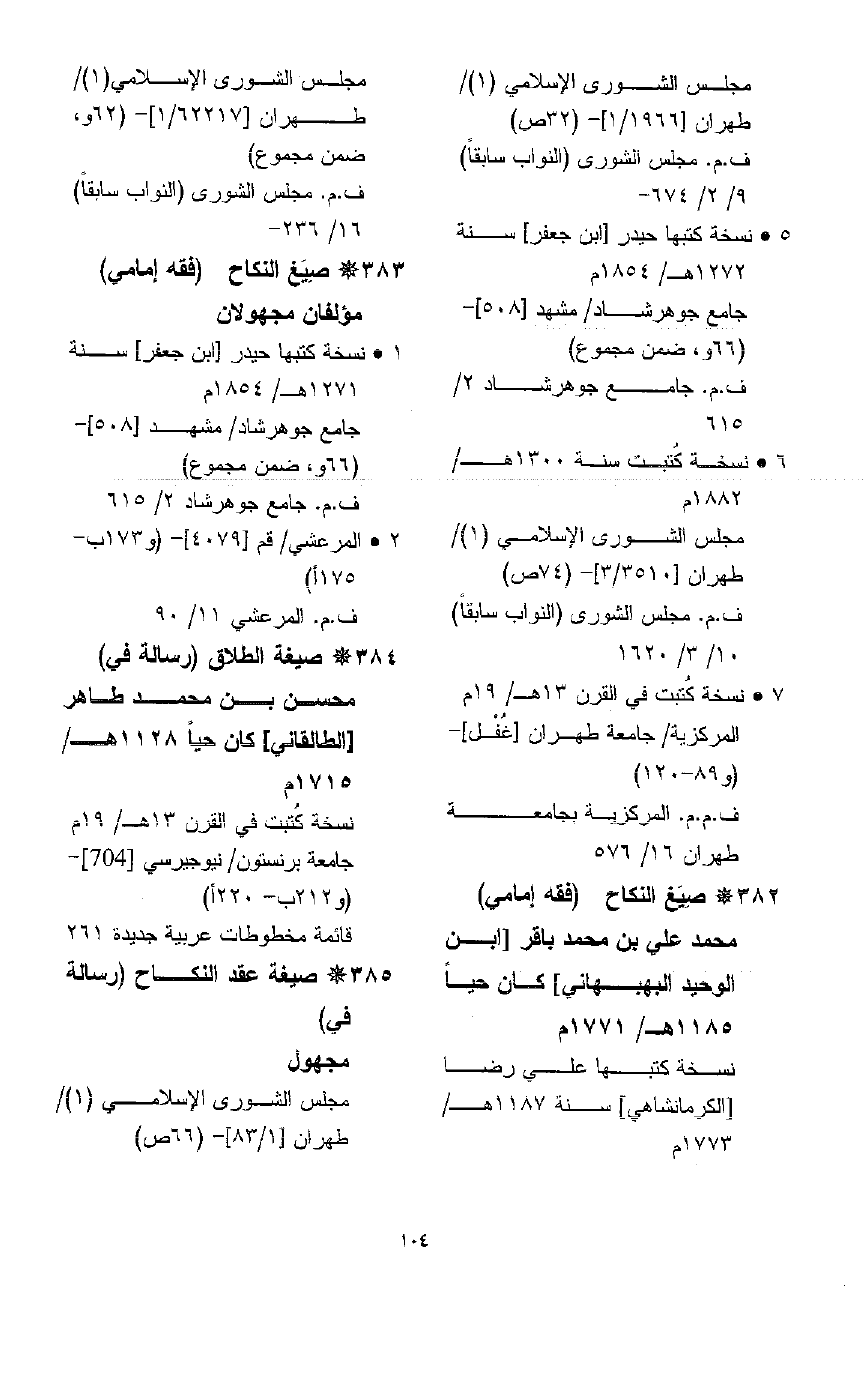 مجلس الشورى الإسلامي (١)/
طهران [١/١٩٦٦]- (٣٢ص)
ف.م. مجلس الشورى (النواب سابقاً)
٩/ ٢/ ٦٧٤-
٥ • نسخة كتبها حيدر [ابن جعفر] سنة
١٢٧٢هـ/ ١٨٥٤م
جامع جوهرشاد/ مشهد [٥٠٨]-
(٦٦و، ضمن مجموع)
ف.م. جامع جوهرشاد ٢/
٦١٥
٦ • نسخة كُتبت سنة ١٣٠٠هـ/
١٨٨٢م
مجلس الشورى الإسلامي (١)/
طهران [٣/٣٥١٠]- (٧٤ص)
ف.م. مجلس الشورى (النواب سابقاً)
١٠/ ٣/ ١٦٢٠
٧ • نسخة كُتبت في القرن ١٣هـ/ ١٩م
المركزية/ جامعة طهران [غُفْل]-
(و٨٩-١٢٠)
ف.م.م. المركزية بجامعة
طهران ١٦/ ٥٧٦
٣٨٢※ صِيَغ النكاح (فقه إمامي)
محمد علي بن محمد باقر [ابن
الوحيد البهبهاني] كان حياً
١١٨٥هـ/ ١٧٧١م
نسخة كتبها علي رضا
[الكرمانشاهي] سنة ١١٨٧هـ/
١٧٧٣م
مجلس الشورى الإسلامي(١)/
طهران [١/٦٢٢١٧]- (٦٢و،
ضمن مجموع)
ف.م. مجلس الشورى (النواب سابقاً)
١٦/ ٢٣٦-
٣٨٣※ صِيَغ النكاح (فقه إمامي)
مؤلفان مجهولان
١ • نسخة كتبها حيدر [ابن جعفر] سنة
١٢٧١هـ/ ١٨٥٤م
جامع جوهرشاد/ مشهد [٥٠٨]-
(٦٦و، ضمن مجموع)
ف.م. جامع جوهرشاد ٢/ ٦١٥
٢ • المرعشي/ قم [٤٠٧٩]- (و١٧٣ب-
١٧٥أ)
ف.م. المرعشي ١١/ ٩٠
٣٨٤※ صيغة الطلاق (رسالة في)
محسن بن محمد طاهر
[الطالقاني] كان حياً ١١٢٨هـ/
١٧١٥م
نسخة كُتبت في القرن ١٣هـ/ ١٩م
جامعة برنستون/ نيوجيرسي [704]-
(و٢١٢ب- ٢٢٠أ)
قائمة مخطوطات عربية جديدة ٢٦١
٣٨٥※ صيغة عقد النكاح (رسالة
في)
مجهول
مجلس الشورى الإسلامي (١)/
طهران [٨٣/١]- (٦٦ص)
١٠٤